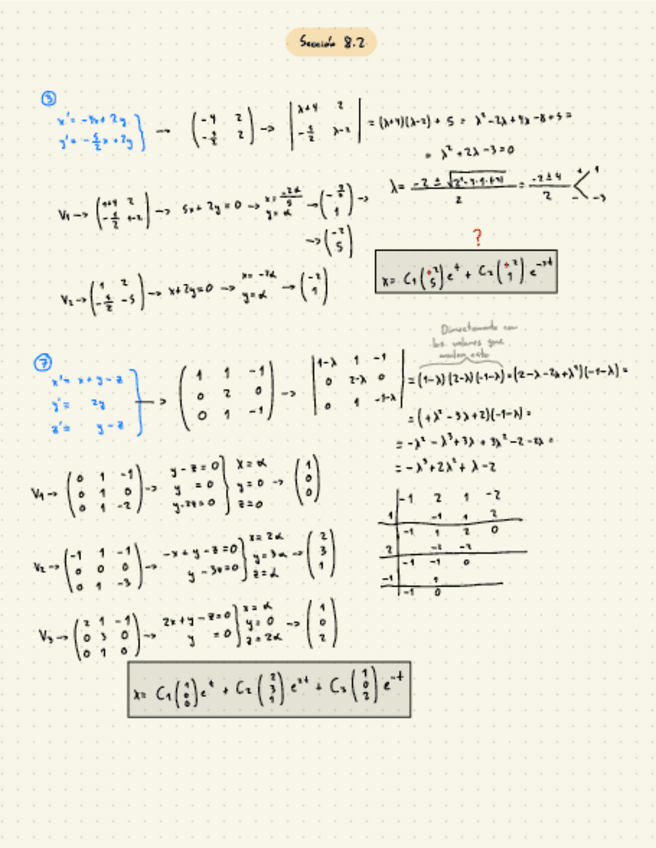 Sección 8.2
③
x' = -4x + 2y
y' = -5/2 x + 2y } → ( -4 2 ; -5/2 2 ) → | λ+4 2 ; -5/2 λ-2 | = (λ+4)(λ-2) + 5 = λ² - 2λ + 4λ - 8 + 5 =
= λ² + 2λ - 3 = 0
λ = = (-2 ± 4)/2 < 1 ; -3
V₁ → → 5x + 2y = 0 → x = -2α/5 y = α → ( -2/5 ; 1 ) →
→ ( -2 ; 5 )
?
x = C₁ ( 2 ; 5 ) eᵗ + C₂ ( 2 ; 1 ) e^-3t
V₂ → ( 1 2 ; -5/2 -5 ) → x + 2y = 0 → x = -2α y = α → ( -2 ; 1 )
Directamente con
los valores que
anulan esto
⑦
x' = x + y - z
y' = 2y
z' = y - z } → ( 1 1 -1 ; 0 2 0 ; 0 1 -1 ) → | 1-λ 1 -1 ; 0 2-λ 0 ; 0 1 -1-λ | = (1-λ)(2-λ)(-1-λ) = (2-λ-2λ+λ²)(-1-λ) =
= (+λ² - 3λ + 2)(-1-λ) =
= -λ² - λ³ + 3λ + 3λ² - 2 - 2λ =
= -λ³ + 2λ² + λ - 2
V₁ → ( 0 1 -1 ; 0 1 0 ; 0 1 -2 ) → y - z = 0 ; y = 0 ; y - 2z = 0 } x = α ; y = 0 ; z = 0 → ( 1 ; 0 ; 0 )
-1 2 1 -2
1 -1 1 2
-1 1 2 0
2 -2 -2
-1 -1 0
-1 1
-1 0
V₂ → ( -1 1 -1 ; 0 0 0 ; 0 1 -3 ) → -x + y - z = 0 ; y - 3z = 0 } x = 2α ; y = 3α ; z = α → ( 2 ; 3 ; 1 )
V₃ → ( 2 1 -1 ; 0 3 0 ; 0 1 0 ) → 2x + y - z = 0 ; y = 0 } x = α ; y = 0 ; z = 2α → ( 1 ; 0 ; 2 )
x = C₁ ( 1 ; 0 ; 0 ) eᵗ + C₂ ( 2 ; 3 ; 1 ) e^2t + C₃ ( 1 ; 0 ; 2 ) e^-t